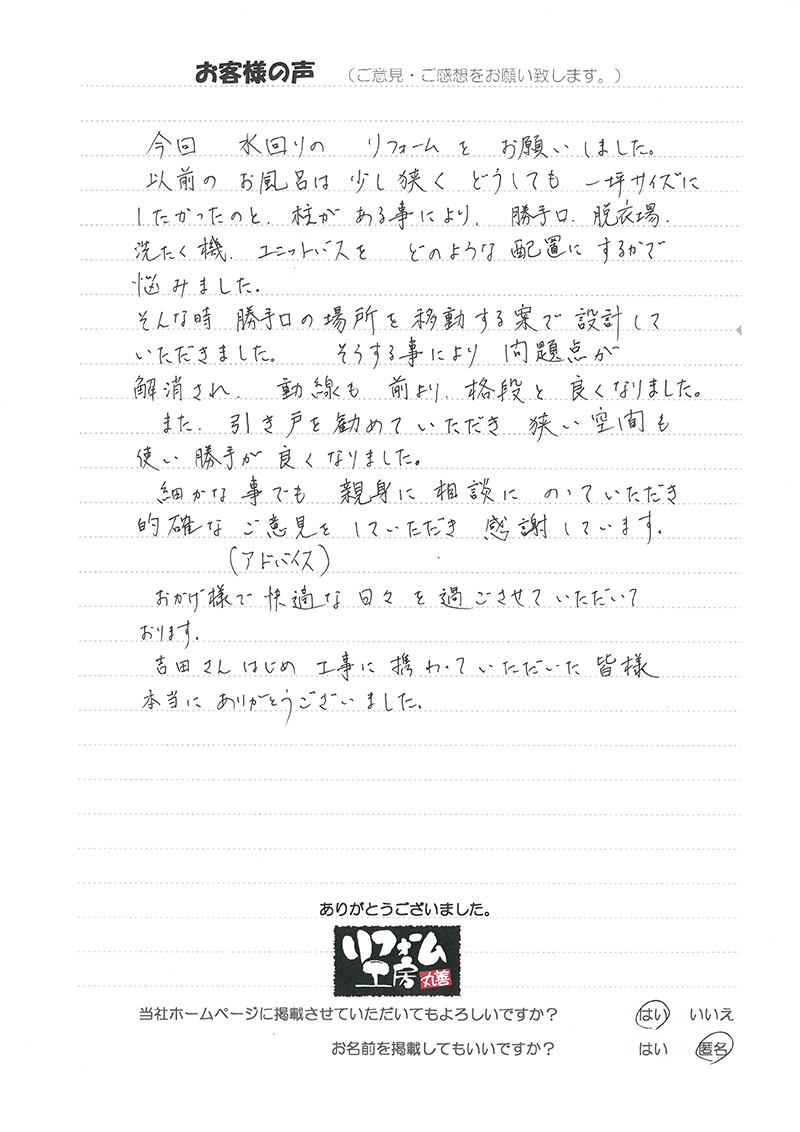 お客様の声 （ご意見・ご感想をお願い致します。）
今回 水回りの リフォームを お願いしました。
以前の お風呂は 少し狭く どうしても 一坪サイズに
したかったのと、柱が ある事により、 勝手口、脱衣場、
洗たく機、ユニットバスを どのような配置に するかで
悩みました。
そんな時 勝手口の場所を移動する案で設計して
いただきました。 そうする事により 問題点が
解消され、 動線も 前より、格段と 良くなりました。
また、引き戸を勧めていただき 狭い空間も
使い勝手が良くなりました。
細かな事でも 親身に相談に のっていただき
的確な ご意見を していただき 感謝しています。
(アドバイス)
おかげ様で快適な日々を過ごさせていただいて
おります。
吉田さんはじめ 工事に携わっていただいた皆様
本当に ありがとうございました。
ありがとうございました。
リフォーム
工房 丸善
当社ホームページに掲載させていただいてもよろしいですか？ はい いいえ
お名前を掲載してもいいですか？ はい 匿名